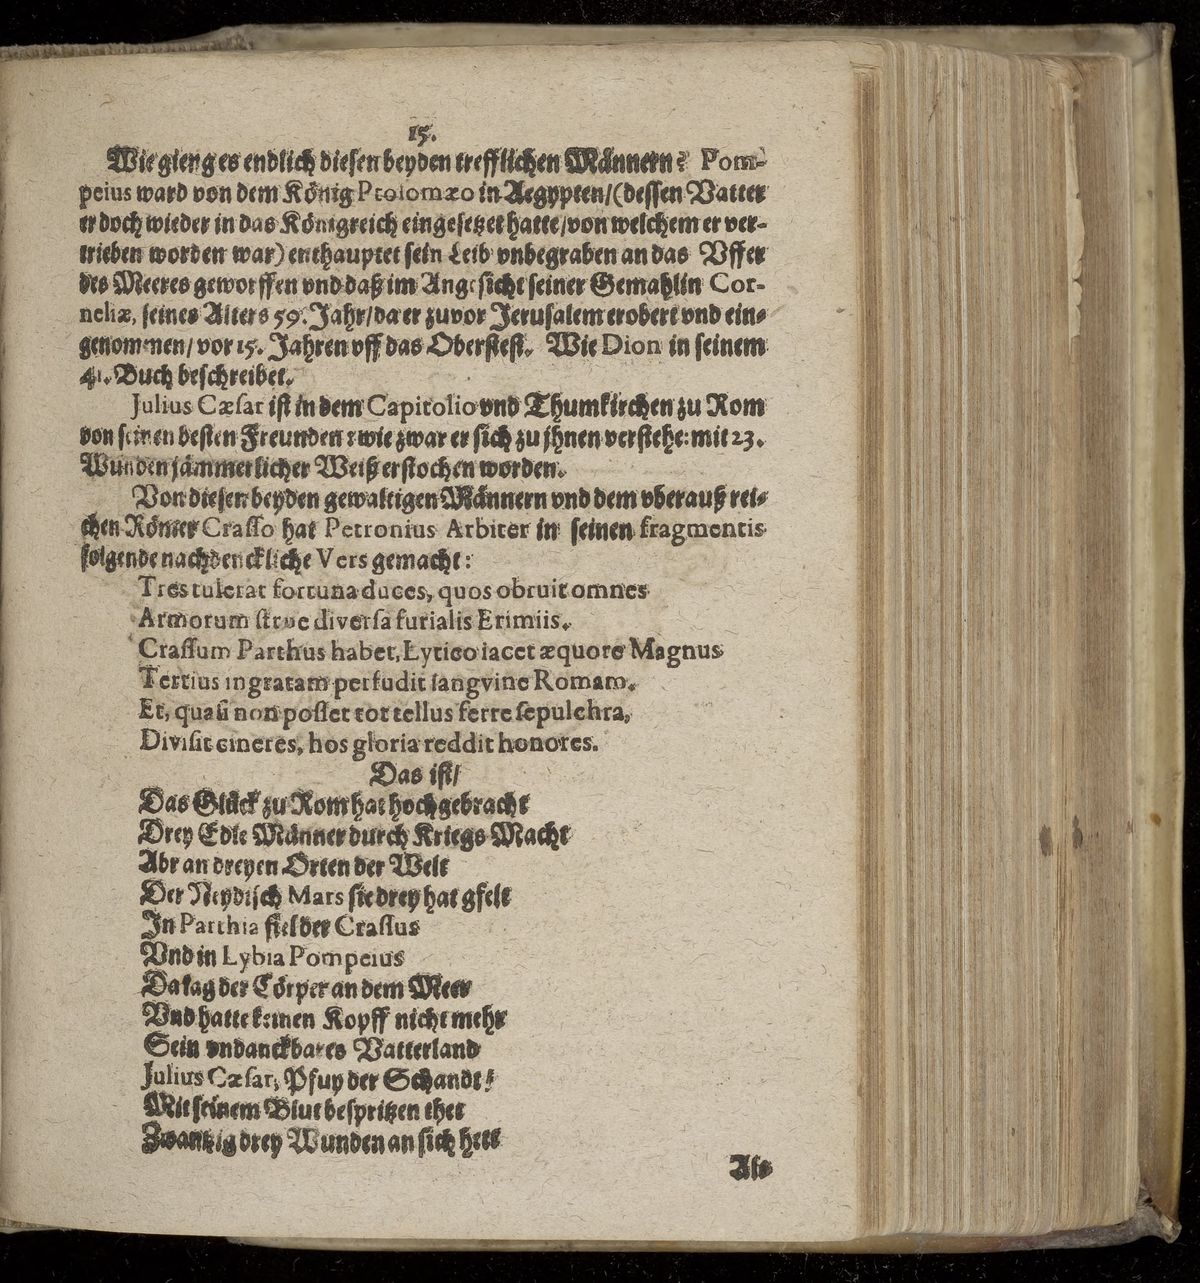 15.
Wie gieng es endlich diesen beyden trefflichen Männern? Pom-
peius ward von dem König Ptolomæo in Aegypten/(dessen Vatter
er doch wieder in das Königreich eingesetzet hatte/von welchem er ver-
trieben worden war) enthauptet sein Leib vnbegraben an das Vffer
des Meeres geworffen vnd daß im Angesicht seiner Gemahlin Cor-
neliæ, seines Alters 59. Jahr/da er zuvor Jerusalem erobert vnd ein-
genommen/vor 15. Jahren vff das Osterfest. Wie Dion in seinem
41. Buch beschreibet.
Julius Cæsar ist in dem Capitolio vnd Thumkirchen zu Rom
von seinen besten Freunden: wie zwar er sich zu jhnen verstehe: mit 23.
Wunden jämmerlicher Weiß erstochen worden.
Von diesen beyden gewaltigen Männern vnd dem vberauß rei-
chen Römer Crasso hat Petronius Arbiter in seinen fragmentis
folgende nachdenckliche Vers gemacht:
Tres tulerat fortuna duces, quos obruit omnes
Armorum strue diversa furialis Erimiis.
Crassum Parthus habet, Lytico iacet æquore Magnus
Tertius ingratam perfudit sangvine Romam.
Et, quasi non posset tot tellus ferre sepulchra,
Divisit cineres, hos gloria reddit honores.
Das ist/
Das Glück zu Rom hat hochgebracht
Drey Edle Männer durch Kriegs Macht
Abr an dreyen Orten der Welt
Der Neydisch Mars sie drey hat gfelt
In Parthia fiel der Crassus
Vnd in Lybia Pompeius
Da lag der Cörper an dem Meer
Vnd hatte keinen Kopff nicht mehr
Sein vndanckbares Vatterland
Julius Cæsar, Pfuy der Schandt!
Mit seinem Blut bespritzen thet
Zwantzig drey Wunden an sich hett
Als